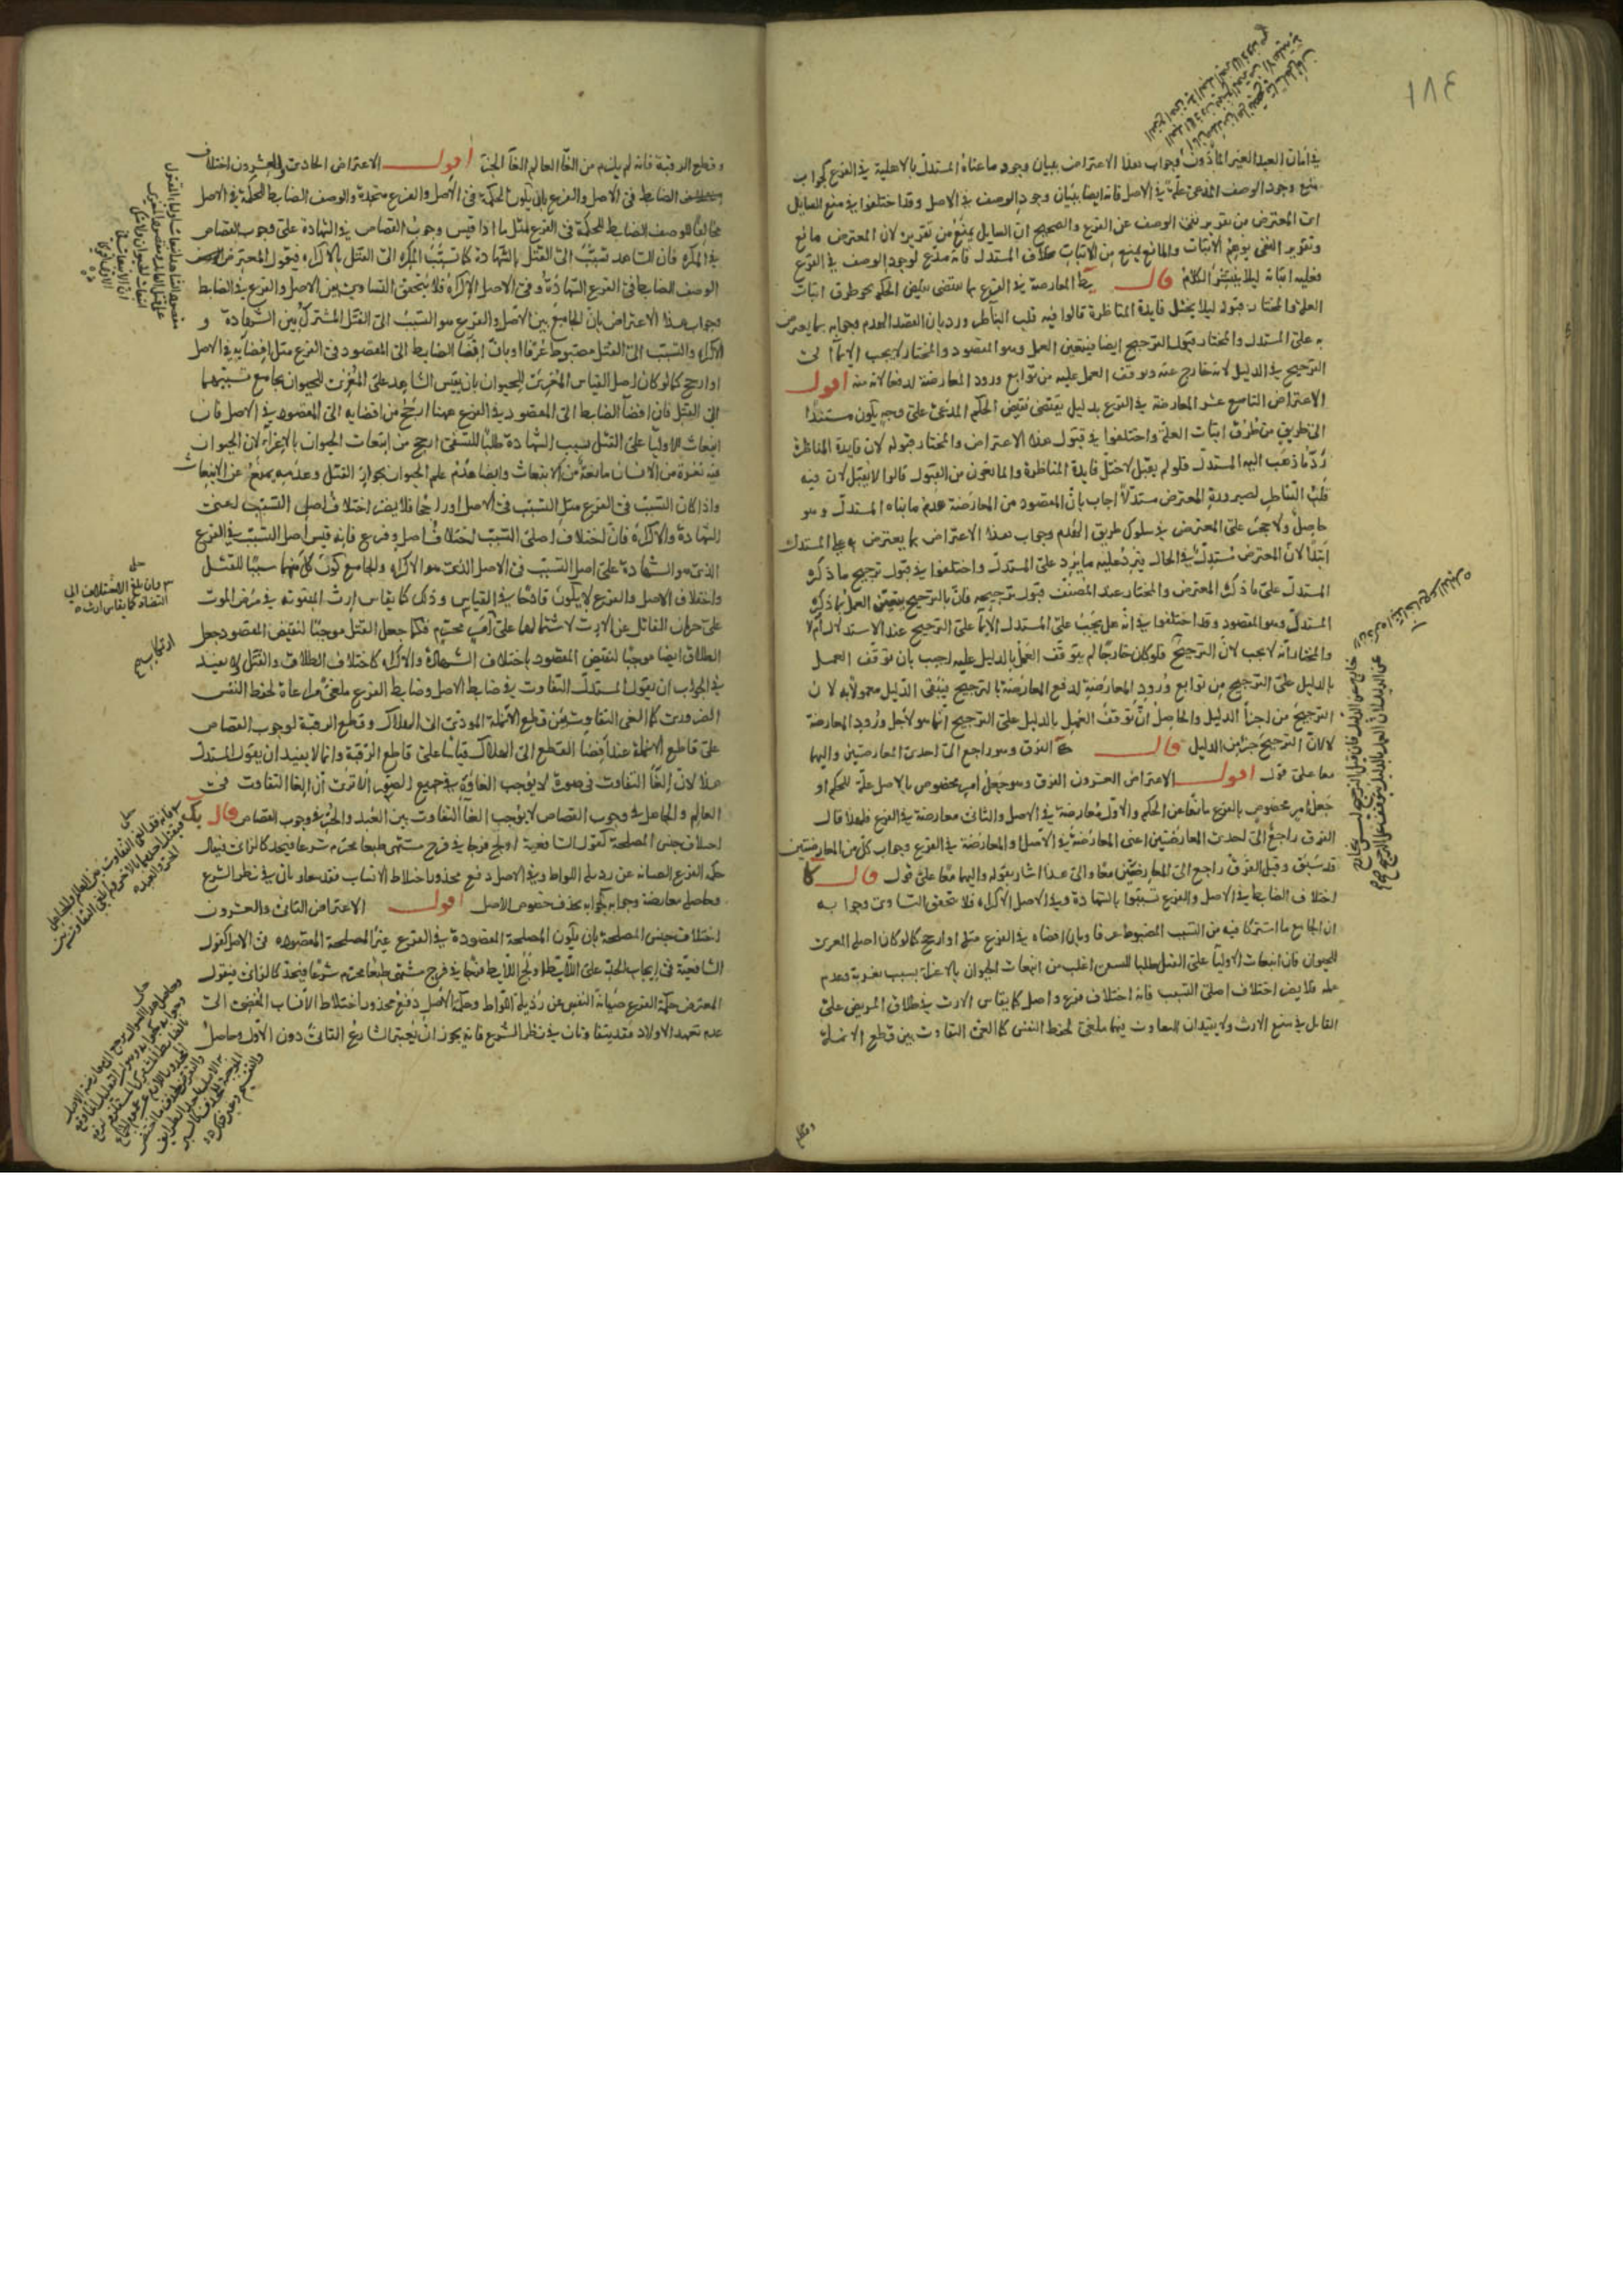 ١٨٤
في امان العبد الغير المأذون وجواب هذا الاعتراض ببيان وجود ما عناه المستدل بالاهلية في الفرع كجواب
منع وجود الوصف المدعى علة في الاصل فانه ايضا ببيان وجود الوصف في الاصل وقد اختلفوا في منع السايل
اى المعترض من تقرير نفى الوصف عن الفرع والصحيح ان السايل يمنع من تقريره لان المعترض مانع
وتقرير النفى يوهم الاثبات والمانع يمنع من الاثبات بخلاف المستدل فانه مدع لوجود الوصف في الفرع
فعليه اثباته ليلا ينتشر الكلام قال يط المعارضة في الفرع بما يقتضى نقيض الحكم بنحو طرق اثبات
العلة والمختار قبوله ليلا يختل فايدة المناظرة قالوا فيه قلب التناظر ورد بان القصد الهدم وجوابه بما يعترض
به على المستدل والمختار قبول الترجيح ايضا فيتعين العمل وهو المقصود والمختار لا يجب الايماء الى
الترجيح في الدليل لانه خارج عنه وتوقف العمل عليه من توابع ورود المعارضة لدفعها لانه منه اقول
الاعتراض التاسع عشر المعارضة في الفرع بدليل يقتضى نقيض الحكم المدعى على وجه يكون مستندا
الى طريق من طرق اثبات العلة واختلفوا في قبول هذا الاعتراض والمختار قبوله لان فايدة المناظرة
رد ما ذهب اليه المستدل فلو لم يقبل لاختل فايدة المناظرة والمانعون من القبول قالوا لا يقبل لان فيه
قلب التناظر لصيرورة المعترض مستدلا اجاب بان المقصود من المعارضة هدم ما بناه المستدل وهو
حاصل ولا حجر على المعترض في سلوك طريق الهدم وجواب هذا الاعتراض بما يعترض به على المستدل
ابتدا لان المعترض مستدل في الحال فيرد عليه ما يرد على المستدل واختلفوا في قبول ترجيح ما ذكره
المستدل على ما ذكره المعترض والمختار عند المصنف قبول ترجيحه فان بالترجيح يتعين العمل بما ذكره
المستدل وهو المقصود وقد اختلفوا في انه هل يجب على المستدل الايماء على الترجيح عند الاستدلال ام لا
والمختار انه لا يجب لان الترجيح فلو كان خارجا لم يتوقف العمل بالدليل عليه اجيب بان توقف العمل
بالدليل على الترجيح من توابع ورود المعارضة لدفع المعارضة بالترجيح فيبقى الدليل معمولا به لا ن
الترجيح من اجزا الدليل والحاصل ان توقف العمل بالدليل على الترجيح انما هو لاجل ورود المعارضة
لا لان الترجيح جزء من الدليل قال ك الفرق وهو راجع الى احدى المعارضتين واليهما
معا على قول اقول الاعتراض العشرون الفرق وهو جعل امر مخصوص بالاصل علة للحكم او
جعل امر مخصوص بالفرع مانعا عن الحكم والاول معارضة في الاصل والثانى معارضة في الفرع فلهذا قال
الفرق راجع الى احدى المعارضتين اعنى المعارضة في الاصل او المعارضة في الفرع وجواب كل من المعارضتين
قد سبق وقيل الفرق راجع الى المعارضتين معا والى هذا اشار بقوله واليهما معا على قول قال كا
اختلاف الضابط في الاصل والفرع تسببوا بالشهادة وفي الاصل الاكراه فلا تحقق التساوى وجوابه
ان الجامع ما اشتركا فيه من التسبب المضبوط عرفا وبان افضاه في الفرع مثله او ارجح كما لو كان اصله المغرى
للحيوان فان انبعاث الاوليا على القتل طلبا للتشفى اغلب من انبعاث الحيوان بالاغراء بسبب نفرته وعدم
علمه فلا يضر اختلاف اصلى التسبب فانه اختلاف فرع واصل كما يقاس الارث في طلاق المريض على
القاتل في منع الارث ولا يفيد ان التفاوت فيهما ملغى لحفظ النفس كما الغى التفاوت بين قطع الانملة
وقطع
وقطع الرقبة فانه لم يلزم من الغاء العالم الغاء الحر اقول الاعتراض الحادى والعشرون اختلاف
الضابط في الاصل والفرع بان يكون الحكمة في الاصل والفرع متحدة والوصف الضابط للحكمة في الاصل
مخالفا للوصف الضابط للحكمة في الفرع مثل ما اذا قيس وجوب القصاص في الشهادة على وجوب القصاص
في المكره فان الشاهد تسبب الى القتل بالشهادة كما تسبب المكره الى القتل بالاكراه فيقول المعترض
الوصف الضابط في الفرع الشهادة وفي الاصل الاكراه فلا يتحقق التساوى بين الاصل والفرع في الضابط
وجواب هذا الاعتراض بان الجامع بين الاصل والفرع هو التسبب الى القتل المشترك بين الشهادة و
الاكراه والتسبب الى القتل مضبوط عرفا او بان افضا الضابط الى المقصود في الفرع مثل افضايه في الاصل
او ارجح كما لو كان اصل القياس المغرى للحيوان بان يقيس الشاهد على المغرى للحيوان بجامع تسببهما
الى القتل فان افضا الضابط الى المقصود في الفرع ههنا ارجح من افضايه الى المقصود في الاصل فان
انبعاث الاوليا على القتل بسبب الشهادة طلبا للتشفى ارجح من انبعاث الحيوان بالاغراء لان الحيوان
فيه نفرة من الانسان مانعة من الانبعاث وايضا عدم علم الحيوان بجواز القتل وعدمه يمنع عن الانبعاث
واذا كان التسبب في الفرع مثل التسبب في الاصل او راجحا فلا يضر اختلاف اصلى التسبب اعنى
الشهادة والاكراه فان اختلاف اصلى التسبب اختلاف اصل وفرع فانه قيس اصل التسبب في الفرع
الذى هو الشهادة على اصل التسبب في الاصل الذى هو الاكراه والجامع كون كل منهما سببا للقتل
واختلاف الاصل والفرع لا يكون قادحا في القياس وذلك كما يقاس ارث المبتوتة في مرض الموت
على حرمان القاتل عن الارث لاشتمالهما على امر محرم فكما جعل القتل موجبا لنقيض المقصود جعل
الطلاق ايضا موجبا لنقيض المقصود باختلاف الشهادة والاكراه كاختلاف الطلاق والقتل ولا يفيد
في الجواب ان يقول المستدل التفاوت في ضابط الاصل وضابط الفرع ملغى مراعاة لحفظ النفس
الضرورى كما الغى التفاوت بين قطع الانملة المودى الى الهلاك وقطع الرقبة لوجوب القصاص
على قاطع الانملة عند افضا القطع الى الهلاك قياسا على قاطع الرقبة وانما لا يفيد ان يقول المستدل
هذا لان الغا التفاوت في صورة لا يوجب الغاؤه في جميع الصور الا ترى ان الغا التفاوت في
العالم والجاهل في وجوب القصاص لا يوجب الغا التفاوت بين العبد والحر في وجوب القصاص قال كب
اختلاف جنس المصلحة كقول الشافعية اولج فرجا في فرج مشتهى طبعا محرم شرعا فيحد كالزانى فيقال
حكمة الفرع الصيانة عن رذيلة اللواط وفي الاصل دفع محذور اختلاط الانساب فقد يتفاوتان في نظر الشرع
وحاصله معارضة وجوابه كجوابه بحذف خصوص الاصل اقول الاعتراض الثانى والعشرون
اختلاف جنس المصلحة بان يكون المصلحة المقصودة في الفرع غير المصلحة المقصودة في الاصل كقول
الشافعية في ايجاب الحد على اللايط اولج اللايط فرجا في فرج مشتهى طبعا محرم شرعا فيحد كالزانى فيقول
المعترض حكمة الفرع صيانة النفس عن رذيلة اللواط وحكمة الاصل دفع محذور اختلاط الانساب المفضى الى
عدم تعهد الاولاد فقد يتفاوتان في نظر الشرع فانه يجوز ان يعتبر الشارع الثانى دون الاول وحاصل